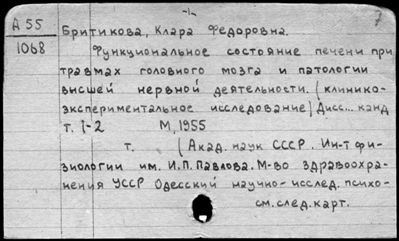 -1-
7
А 55
1068
Бритикова, Клара Федоровна.
Функциональное состояние печени при
травмах головного мозга и патологии
высшей нервной деятельности. (клинико-
экспериментальное исследование) Дисс... канд
т. 1-2 М, 1955
т. (Акад. наук СССР. Ин-т фи-
зиологии им. И.П. Павлова. М-во здравоохра-
нения УССР Одесский научно-исслед. психо-
см. след. карт.